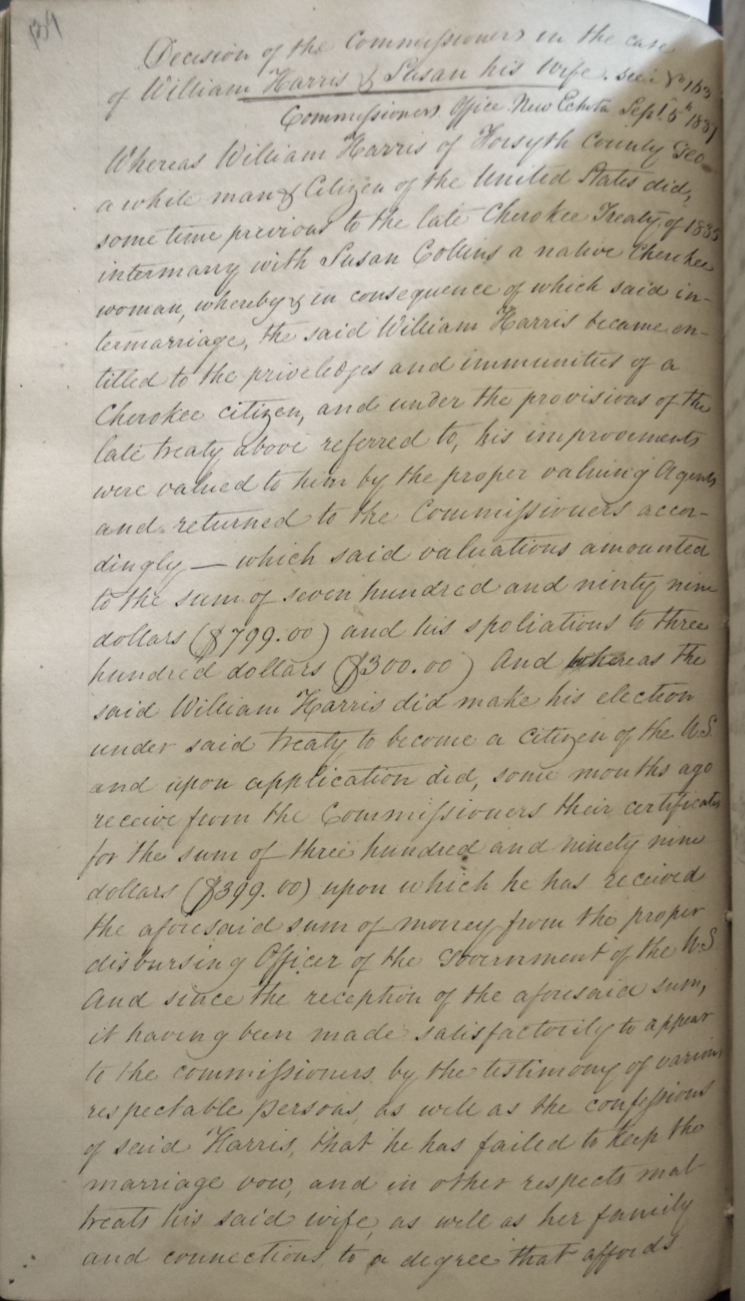 134
Decision of the Commissioners in the case
of William Harris & Susan his wife. Dec: No 153
Commissioners Office New Echota Sept. 5th 1837
Whereas William Harris of Forsyth County Geo-
a white man & Citizen of the United States did,
some time previous to the late Cherokee Treaty of 1835
intermarry with Susan Collins a native Cherokee
woman, whereby & in consequence of which said in-
termarriage, the said William Harris became en-
titled to the priveledges and immunities of a
Cherokee citizen, and under the provisions of the
late treaty above referred to, his improvements
were valued to him by the proper valuing Agents
and returned to the Commissioners accor-
dingly — which said valuations amounted
to the sum of seven hundred and ninty nine
dollars ($799.00) and his spoliations to three
hundred dollars ($300.00) And whereas the
said William Harris did make his election
under said treaty to become a citizen of the U.S.
and upon application did, some months ago
receive from the Commissioners their certificates
for the sum of three hundred and ninety nine
dollars ($399.00) upon which he has received
the aforesaid sum of money from the proper
disbursing Officer of the Government of the U.S
And since the reception of the aforesaid sum,
it having been made satisfactorily to appear
to the commissioners by the testimony of various
respectable persons, as well as the confessions
of said Harris, that he has failed to keep the
marriage vow, and in other respects mal-
treats his said wife, as well as her family
and connections to a degree that affords